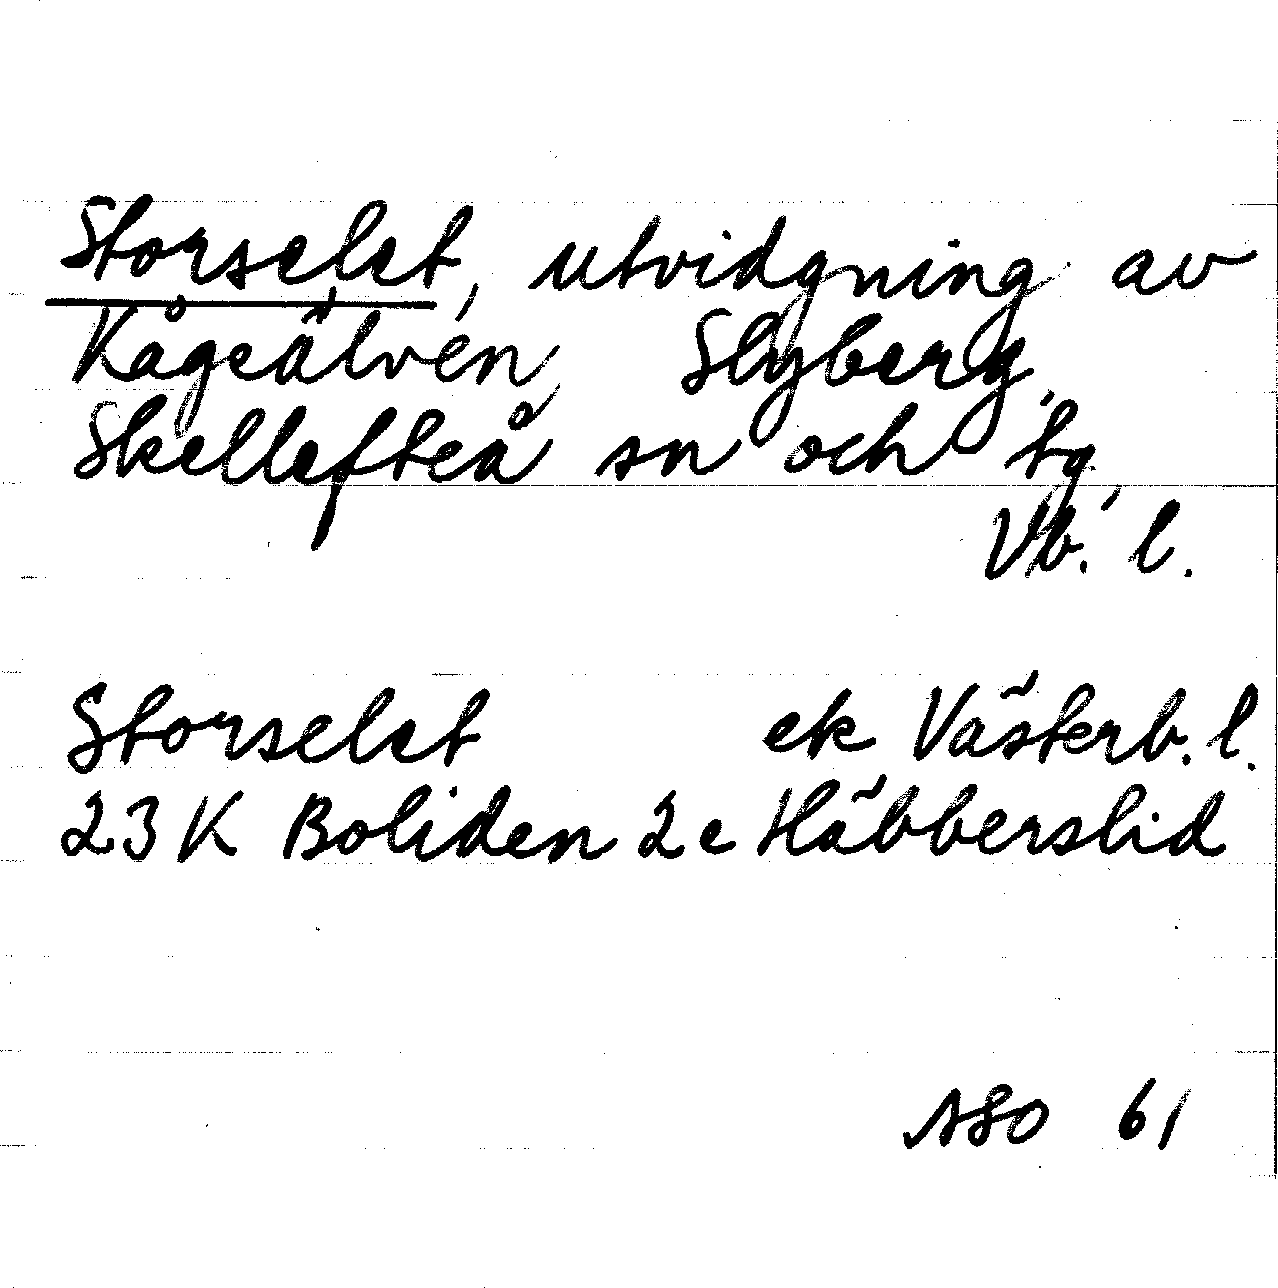 Storselet, utvidgning av
Kågeälven, Slyberg,
Skellefteå sn och tg,
Vb. l.
Storselet ek Västerb. l.
23 K Boliden 2e Häbberslid
ASO 61